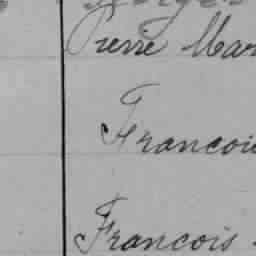 Pierre Mar
Francois
Francois